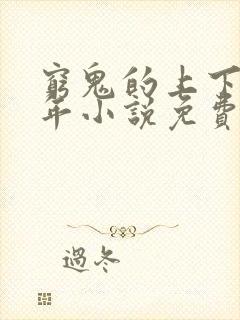 窮鬼的上下
年小說免費
過冬